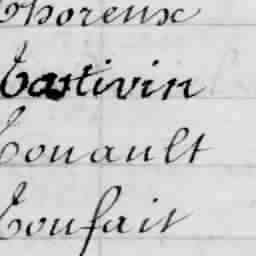 Thoreux
Tastivin
Touault
Toufait